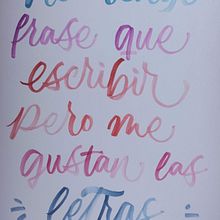 No tengo
frase que
escribir
pero me
gustan las
letras